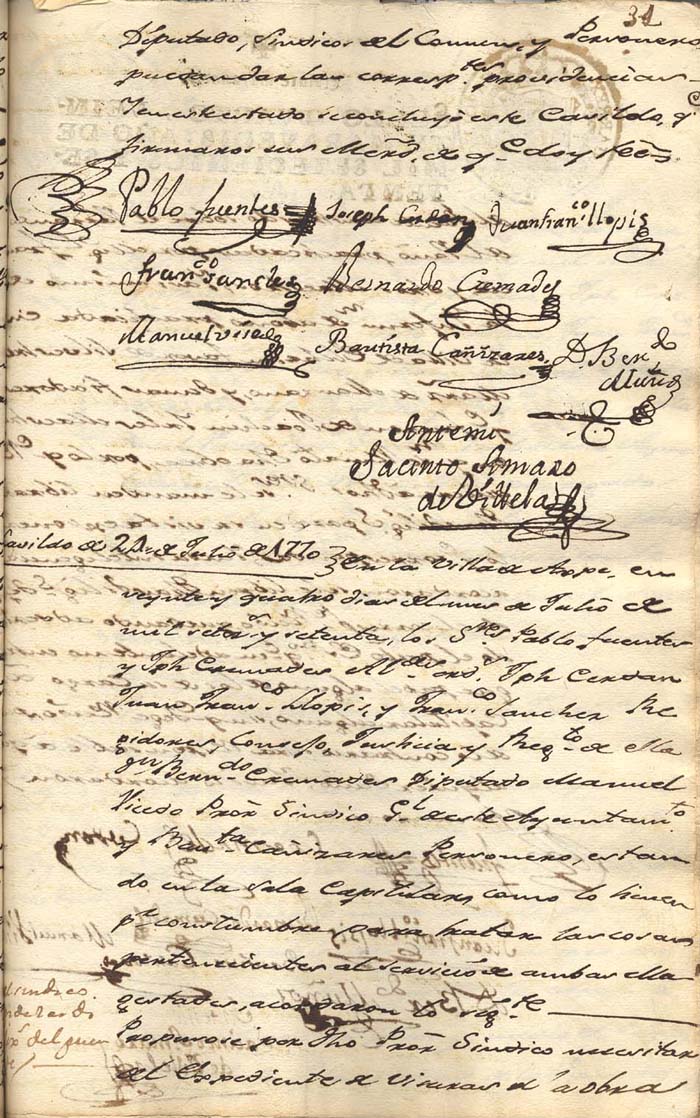 31
Diputado, Sindicos del Comun, y Personero
puedan dar las corresp.tes providencias
En este estado se concluyó este Cavildo, q.e
firmaron sus Mer.d, de q.e doy feè
Pablo fuentes Joseph Cerdan Juan fran.co llopis
fran.co Sanchez Bernardo Cremades
Manuel Visedo Bautista Cañizares D. Ber.do
Antemi
Jacinto Amaro
de Villela
Cavildo de 24 de Julio de 1770
En la Villa de Aspe, en
veynte y quatro dias del mes de Julio de
mil setez.s y setenta, los S.res Pablo fuentes
y Jph Cremades Al.des ord.s Jph Cerdan
Juan Fran.co Llopis, y Fran.co Sanchez Re
gidores, Consejo, Justicia, y Reg.to de ella
Bern.do Cremades Diputado Manuel
Visedo Pror Sindico G.l de este Ayuntam.to
y Bau.ta Cañizares Personero, estan
do en la Sala Capitular, como lo tienen
p.r constumbre para tratar las cosas
pertenecientes al servicio de ambas Ma
gestades, acordaron lo sig.te
Propusose por dho Pror Sindico necesitar
del Expediente de a obra